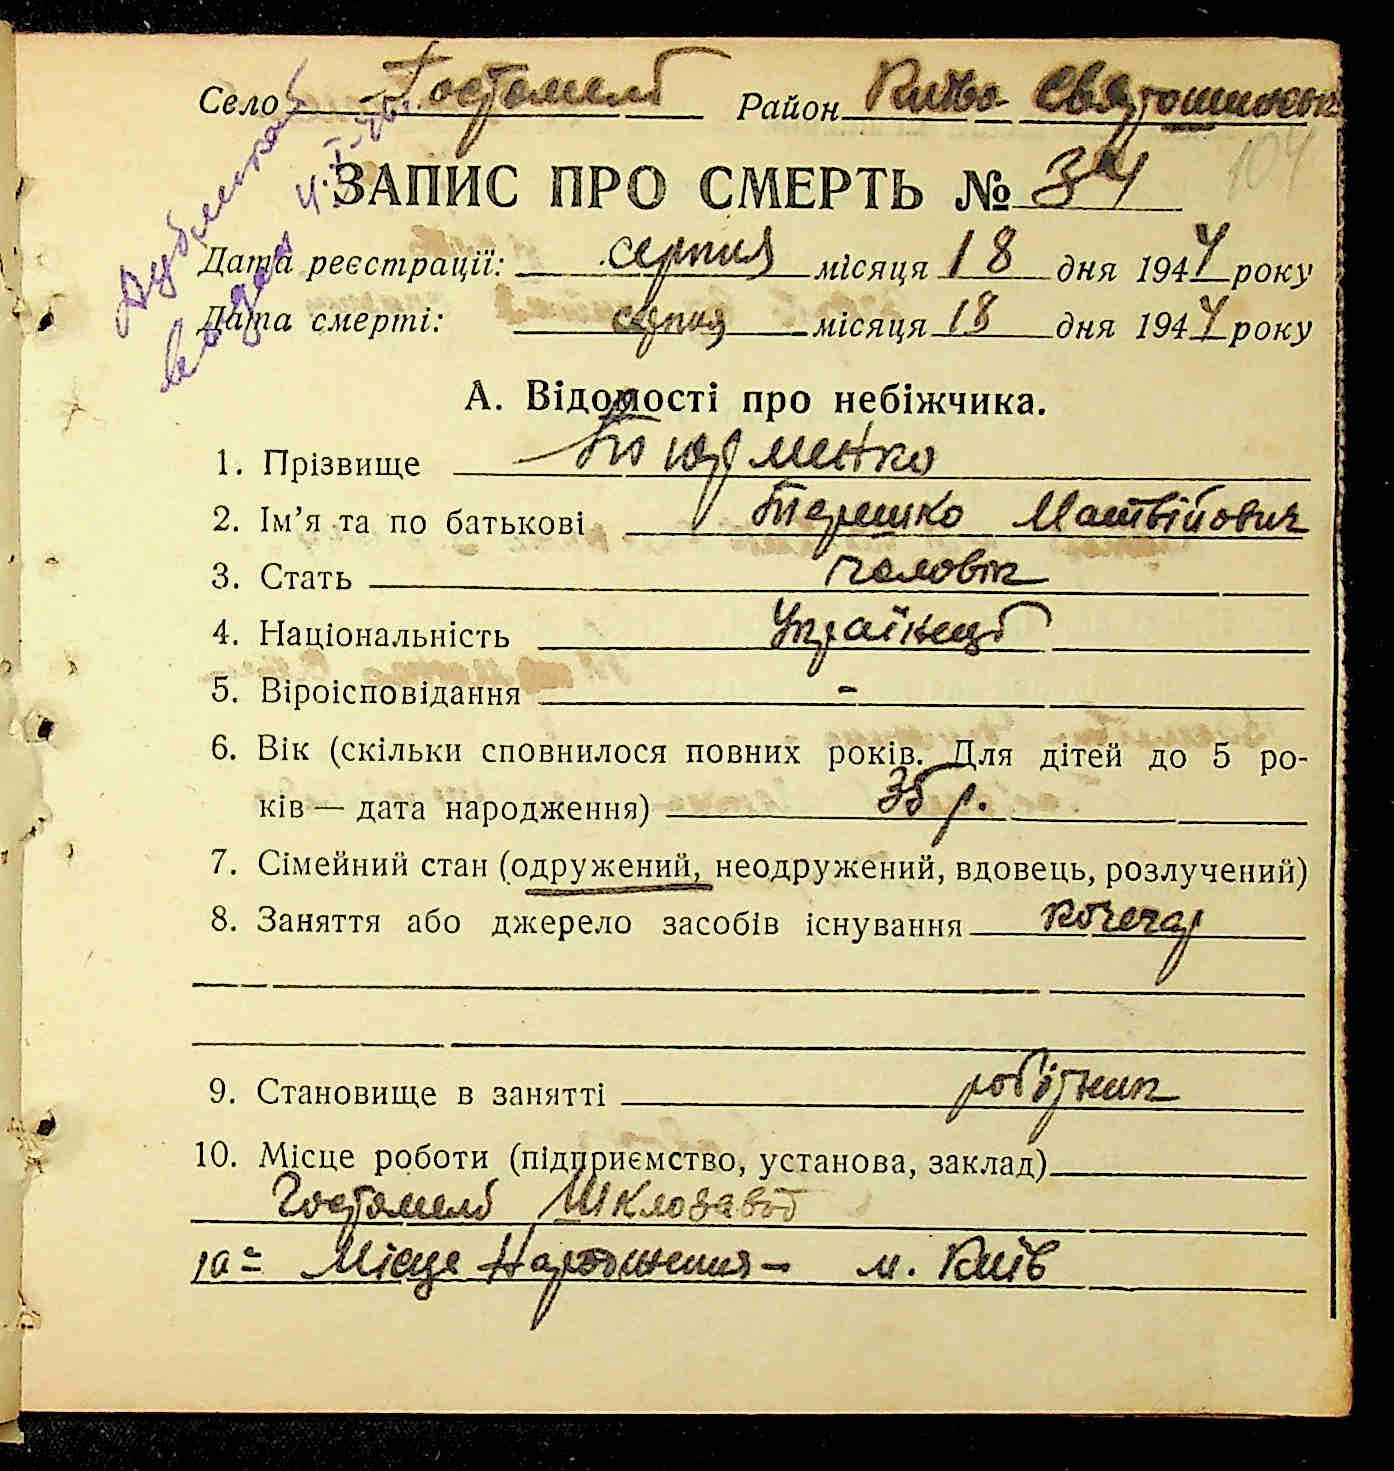 Село Гостомель Район Києво-Святошинськ
ЗАПИС ПРО СМЕРТЬ № 34
104
Дата реєстрації: серпня місяця 18 дня 1944 року
Дата смерті: серпня місяця 18 дня 1944 року
А. Відомості про небіжчика.
1. Прізвище
2. Ім'я та по батькові Терешко Матвійович
3. Стать чоловік
4. Національність Українець
5. Віроісповідання -
6. Вік (скільки сповнилося повних років. Для дітей до 5 ро-
ків — дата народження) 35 р.
7. Сімейний стан (одружений, неодружений, вдовець, розлучений)
8. Заняття або джерело засобів існування Кочегар
9. Становище в занятті робітник
10. Місце роботи (підприємство, установа, заклад)
Гостомель Шклозавод
10а - Місце народження - м. Київ